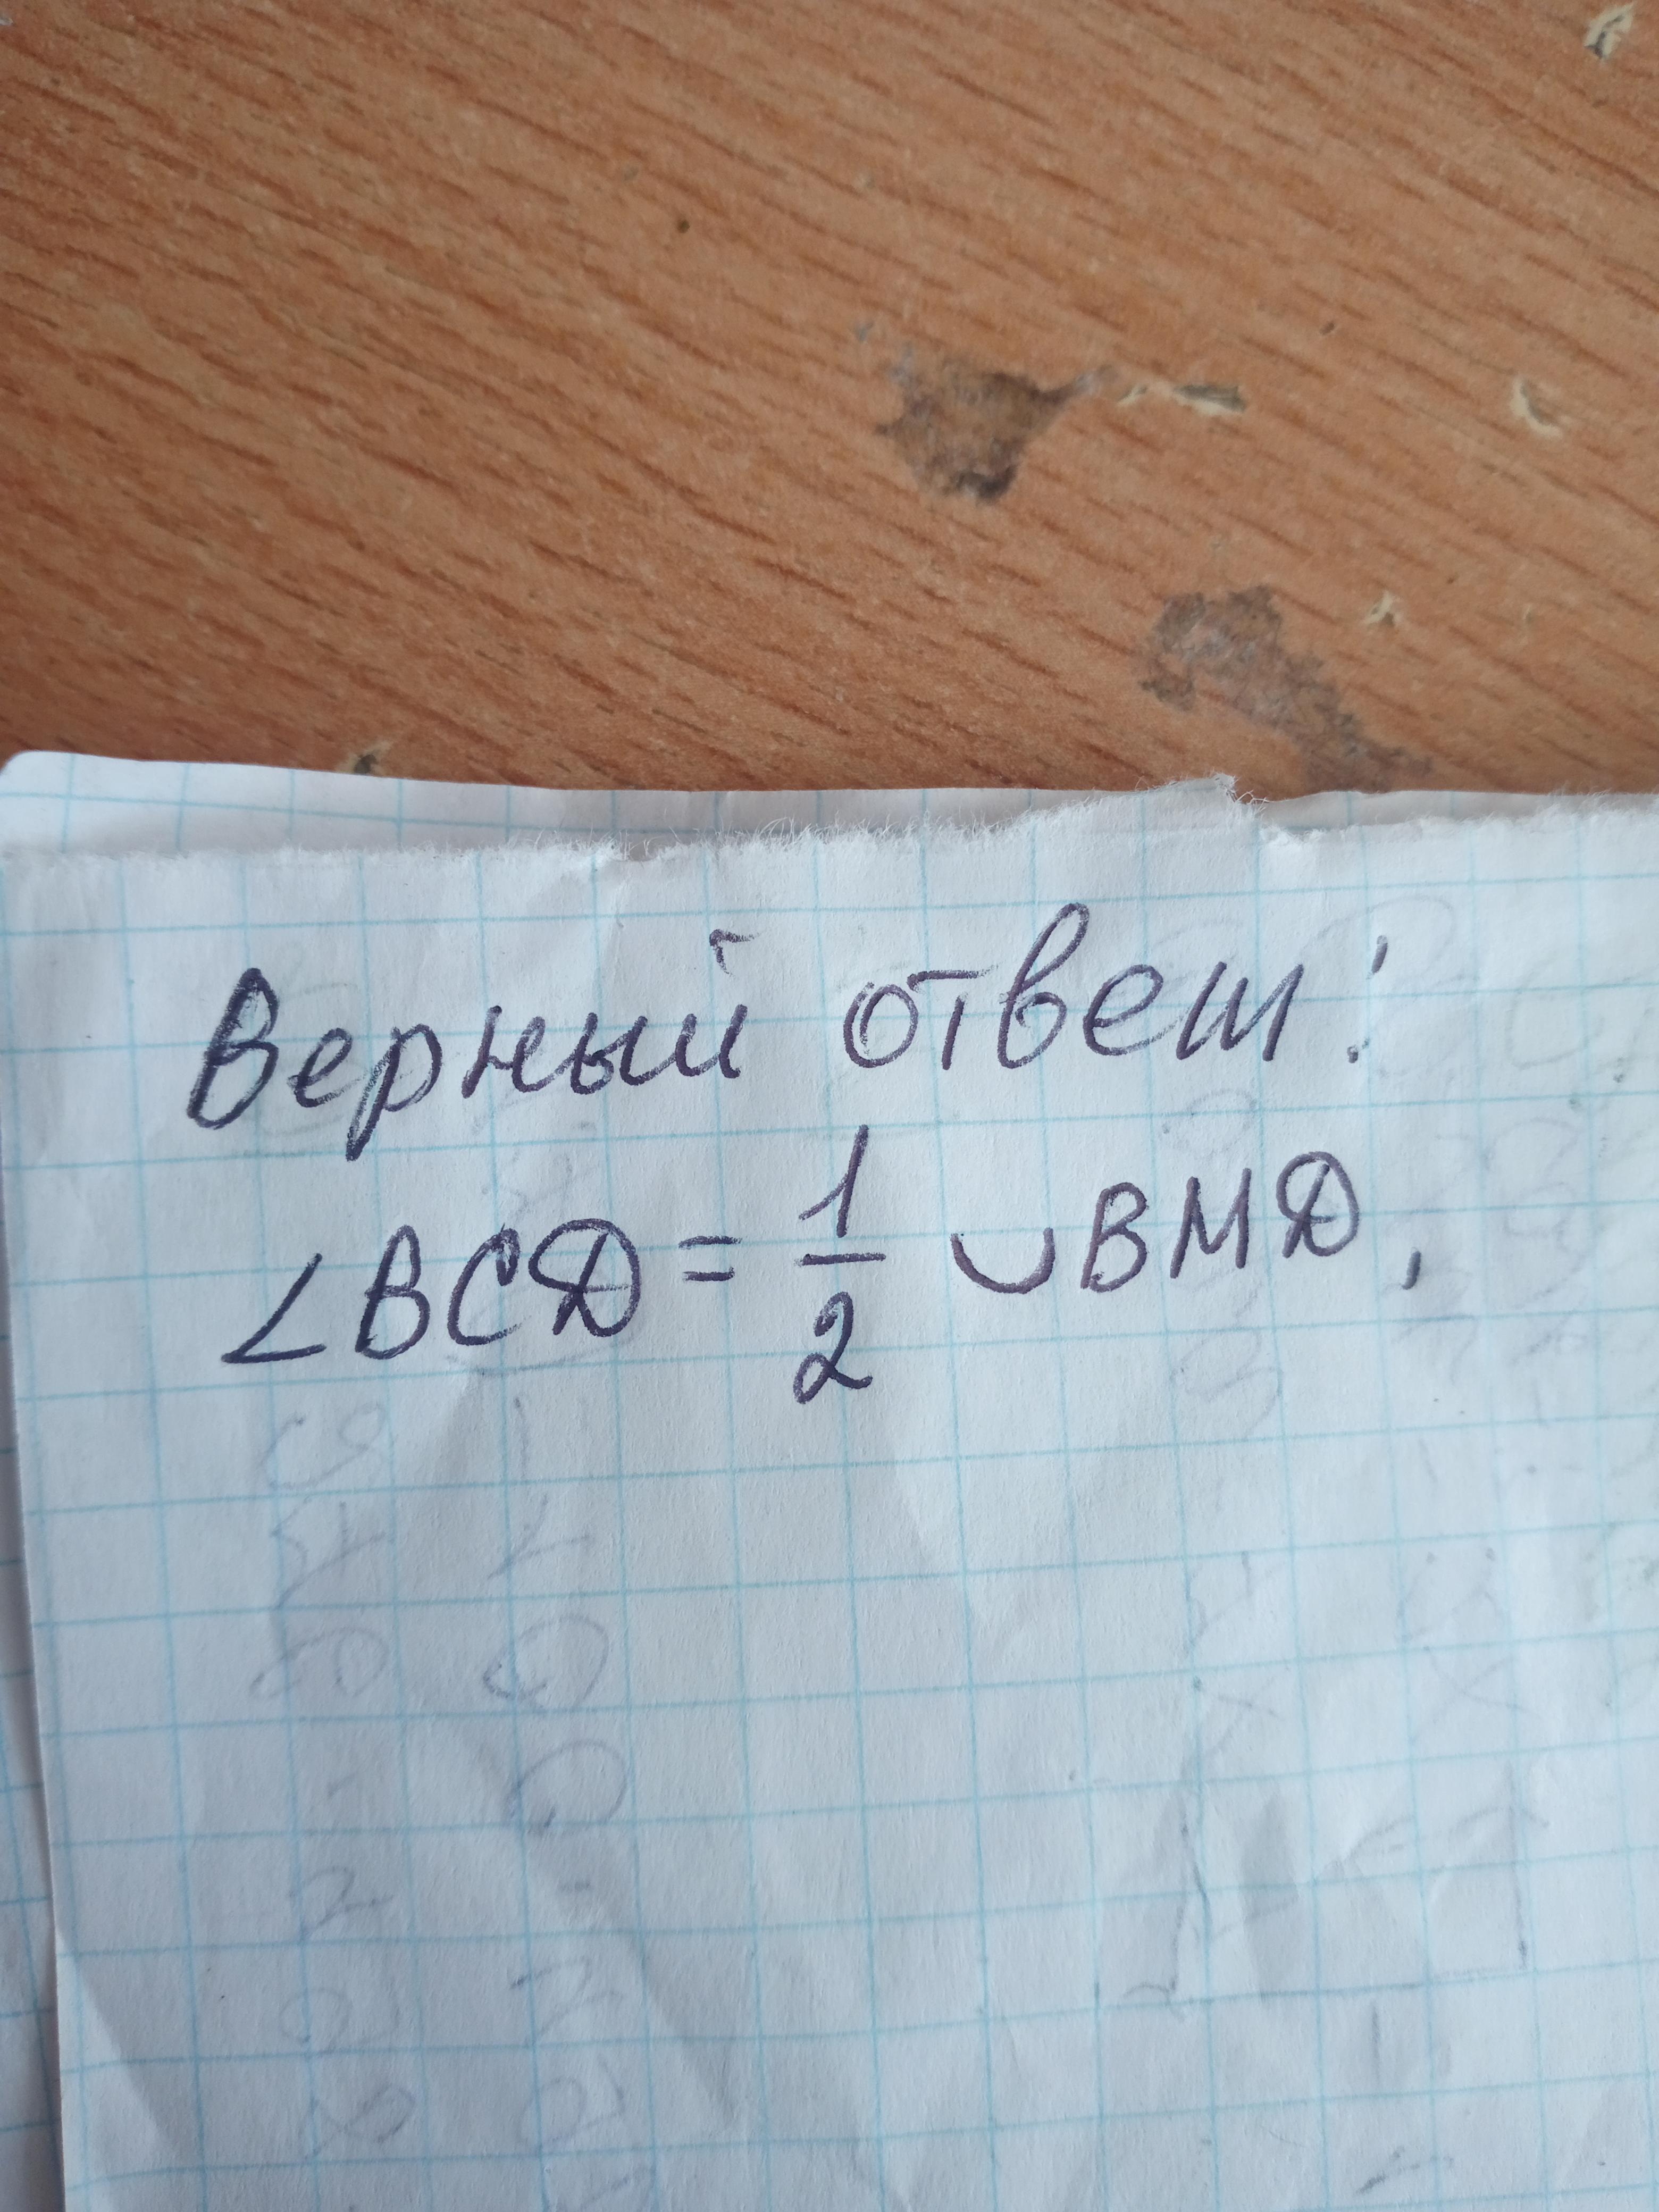 Верный ответ:
∠BCD = 1/2 ◡BMD,